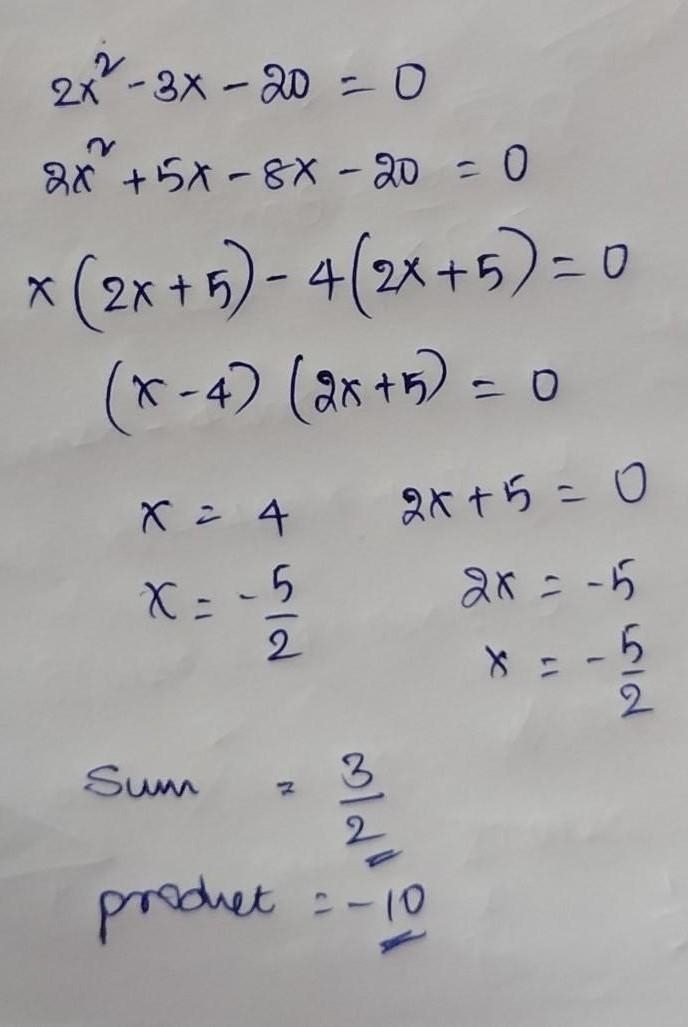 2x² - 3x - 20 = 0
2x² + 5x - 8x - 20 = 0
x(2x + 5) - 4(2x + 5) = 0
(x - 4) (2x + 5) = 0
x = 4    2x + 5 = 0
x = -5/2    2x = -5
x = -5/2
Sum = 3/2
product = -10